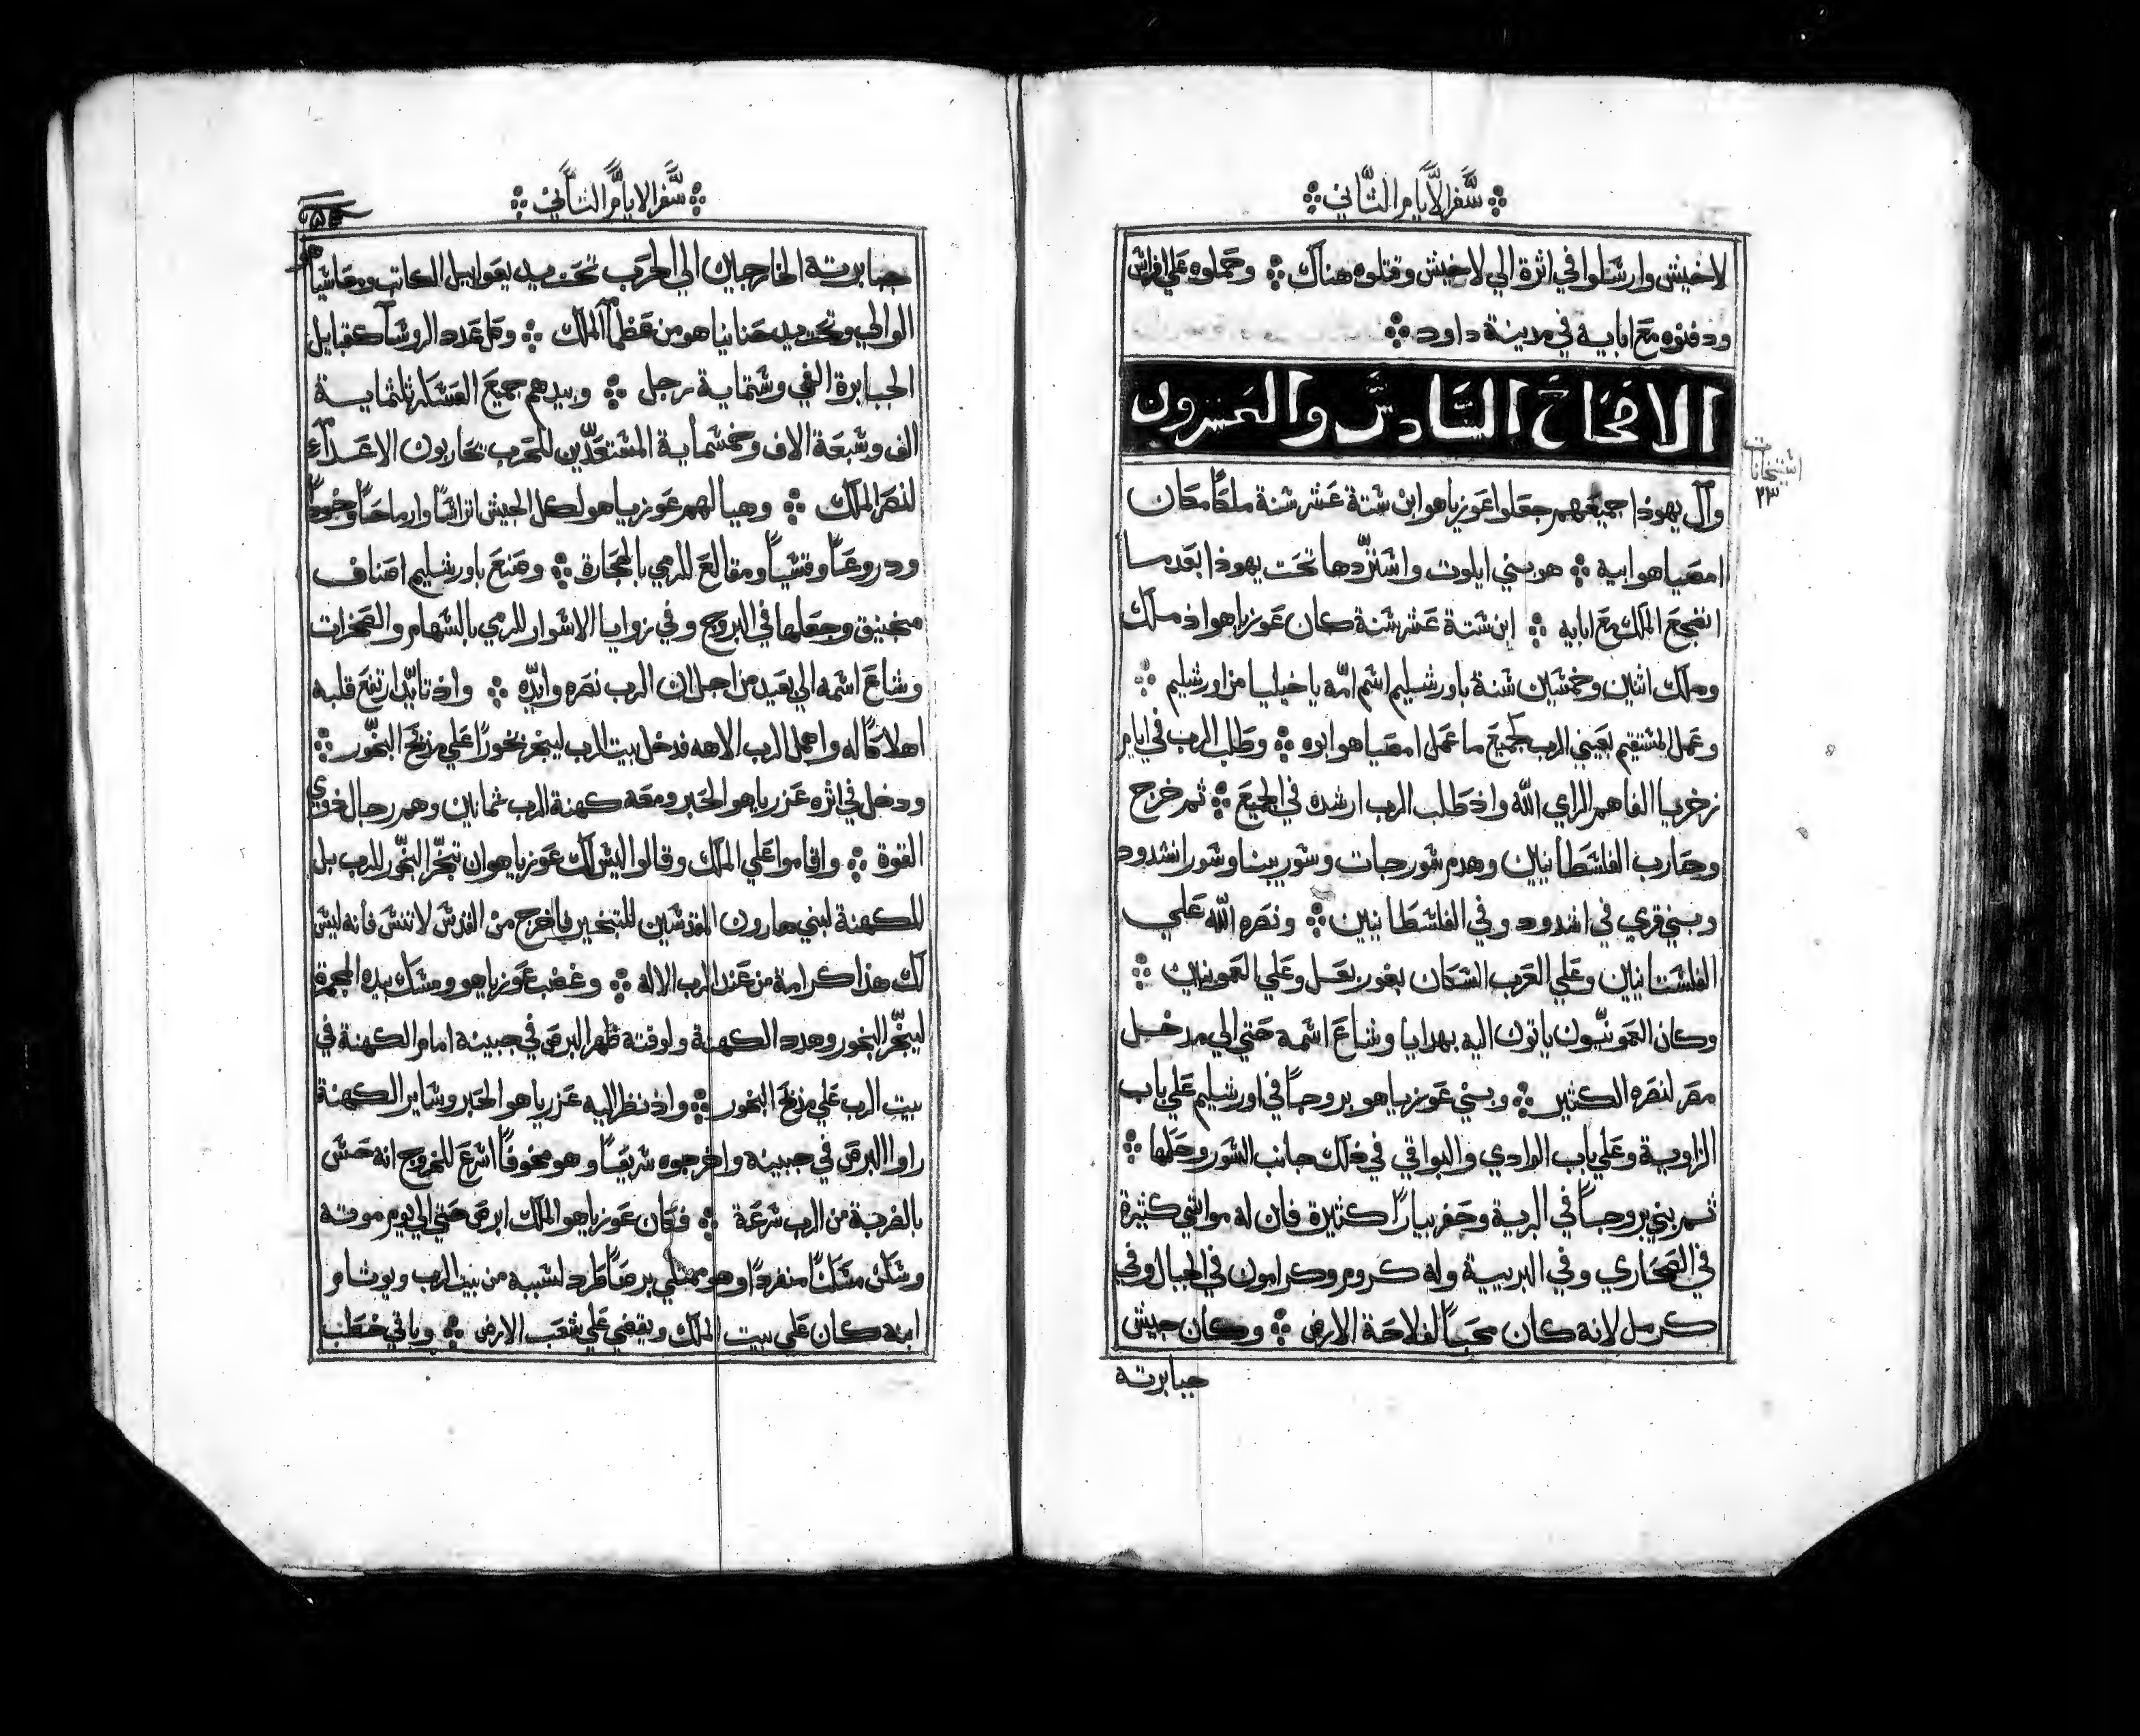 سفر الايام الثاني
لاخيش وارسلوا في اثرة الي لاخيش وقتلوه هناك وحملوه علي افراس
ودفنوه مع ابايه في مدينة داود
الاصحاح السادس والعشرون
وآل يهوذا جميعهم جعلوا عوزياهو ابن ستة عشر سنة ملكًا مكان
امصياهو ابيه هو بني ايلوت واستردها تحت يهوذا بعد ما
انضجع الملك مع ابايه ابن ستة عشر سنة كان عوزياهو اذ ملك
وملك اثنين وخمسين سنة باورشليم اسم امه ياخيليا من اورشليم
وعمل المستقيم بعيني الرب كجميع ما عمل امصياهو ابوه وطلب الرب في ايام
زخريا الفاهم الراي الله واذ طلب الرب ارشده في الجميع ثم خرج
وحارب الفلسطانيين وهدم سور جات وسور يبنا وسور اشدود
وبني قري في اشدود وفي الفلسطانيين ونصره الله علي
الفلستانيين وعلي العرب السكان بغور بعل وعلي العمونيين
وكان العمونيّون ياتون اليه بهدايا وشاع اسمه حتي الي مدخل
مصر لنصره الكثير وبني عوزياهو بروجًا في اورشليم علي باب
الزاوية وعلي باب الوادي والبواقي في ذلك جانب السور وحلها
ثم بني بروجًا في البرية وحفر بيارًا كثيرة فان له مواشي كثيرة
في الصحاري وفي البريية وله كروم وكرامون في الجبال وفي
كرمل لانه كان محبًا لفلاحة الارض وكان جيش
جبابرته
استحانات
٢٣
سفر الايام الثاني
جبابرته الخارجين الي الحرب تحت يد يعواييل الكاتب ومعاشيا
الوالي وتحت يد حنانياهو من عظما الملك وكل عدد الروسآ كقبايل
الجبابرة الفي وستماية رجل وبيدهم جميع العساكر ثلثماية
الف وسبعة الاف وخمسماية المستعدّين للحرب يحاربون الاعداء
لنصر الملك وهيا لهم عوزياهو لكل الجيش اتراسًا وارماحًا وخودًا
ودروعًا وقسيًا ومقالع للرمي بالحجارة وصنع باورشليم اصناف
منجنيق وجعلها في البروج وفي زوايا الاسوار للرمي بالسهام والصخرات
وشاع اسمه الي بعيد من اجل ان الرب نصره وايّده واذ تايّد ارتفع قلبه
اهلاكًا له واهمل الرب الاهه فدخل بيت الرب ليبخر بخورًا علي مذبح البخّور
ودخل في اثره عزرياهو الحبر ومعه كهنة الرب ثمانين وهم رجال ذوي
القوة واقاموا علي الملك وقالوا ليس لك عوزياهو ان تبخّر البخّور للرب بل
للكهنة لبني هارون المقدسين للتبخير فاخرج من القدس لا تنس فانه ليس
لك هذا كرامة من عند الرب الاله وغضب عوزياهو ومسك بيده المجمرة
ليبخّر البخور وهدد الكهنة ولوقته ظهر البرص في جبينه امام الكهنة في
بيت الرب علي مذبح البخور واذ نظر اليه عزرياهو الحبر وساير الكهنة
راوا البرص في جبينه واخرجوه سريعًا وهو مخوفًا اسرع للخروج انه حس
بالضربة من الرب سرعة فكان عوزياهو الملك ابرص حتي الي يوم موته
وسكن مسكنًا منفردًا وهو ممتلي برصًا طرد لسببه من بيت الرب ويوثام
ابنه كان علي بيت الملك ويقضي علي شعب الارض وباقي خطب